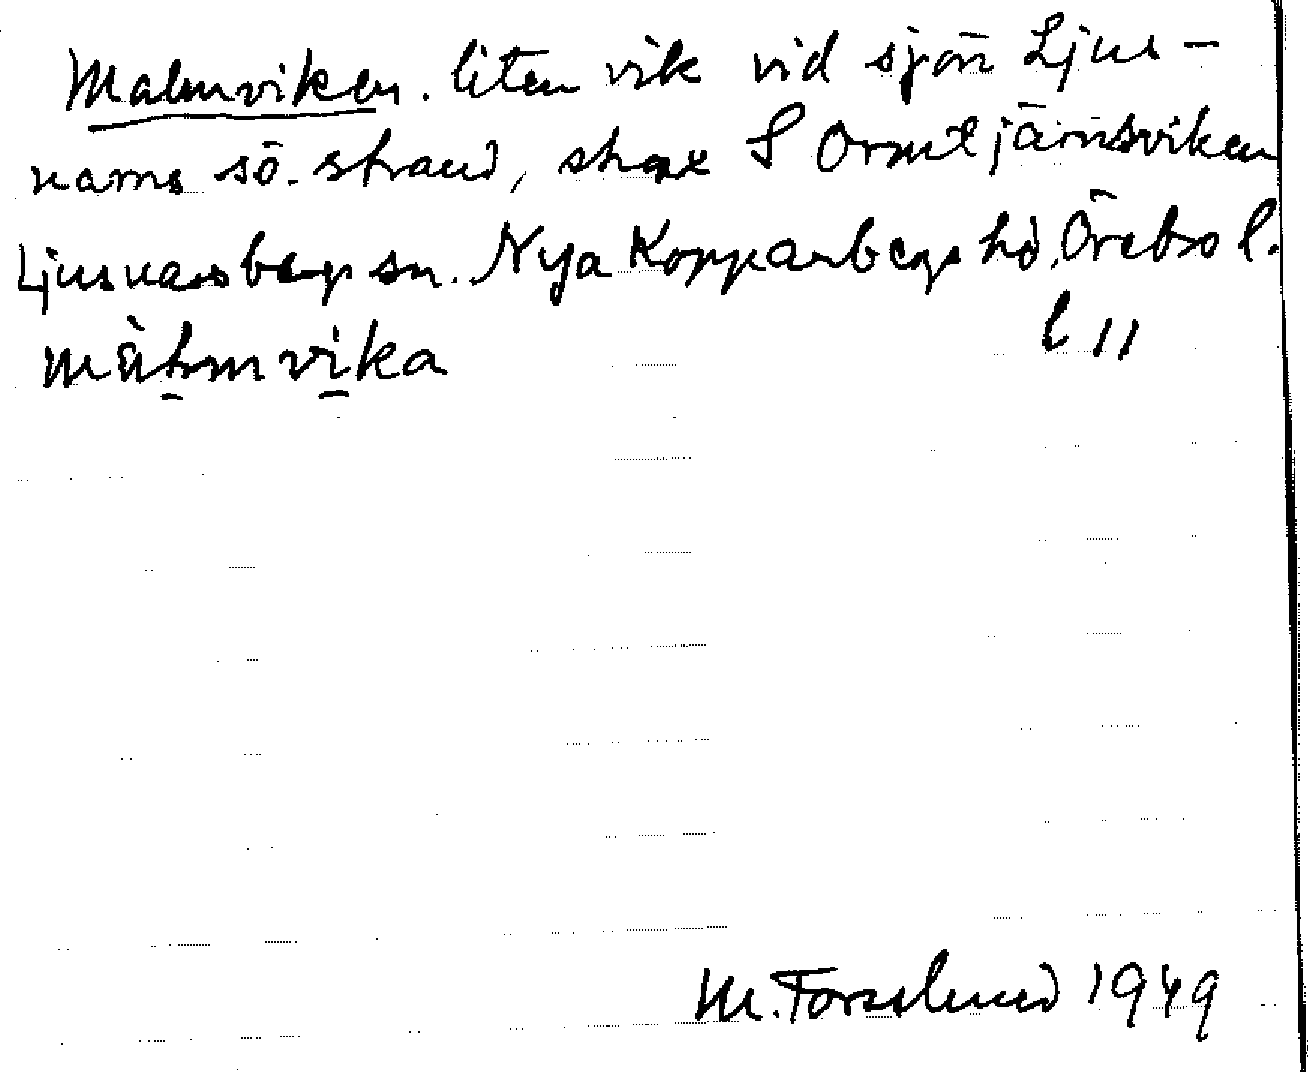 Malmviken. liten vik vid sjön Ljus-
narns sö. strand, strax S Ormtjärnsviken
Ljusnarsbergs sn. Nya Kopparbergs hd, Örebro l.
l 11
M. Forslund 1949